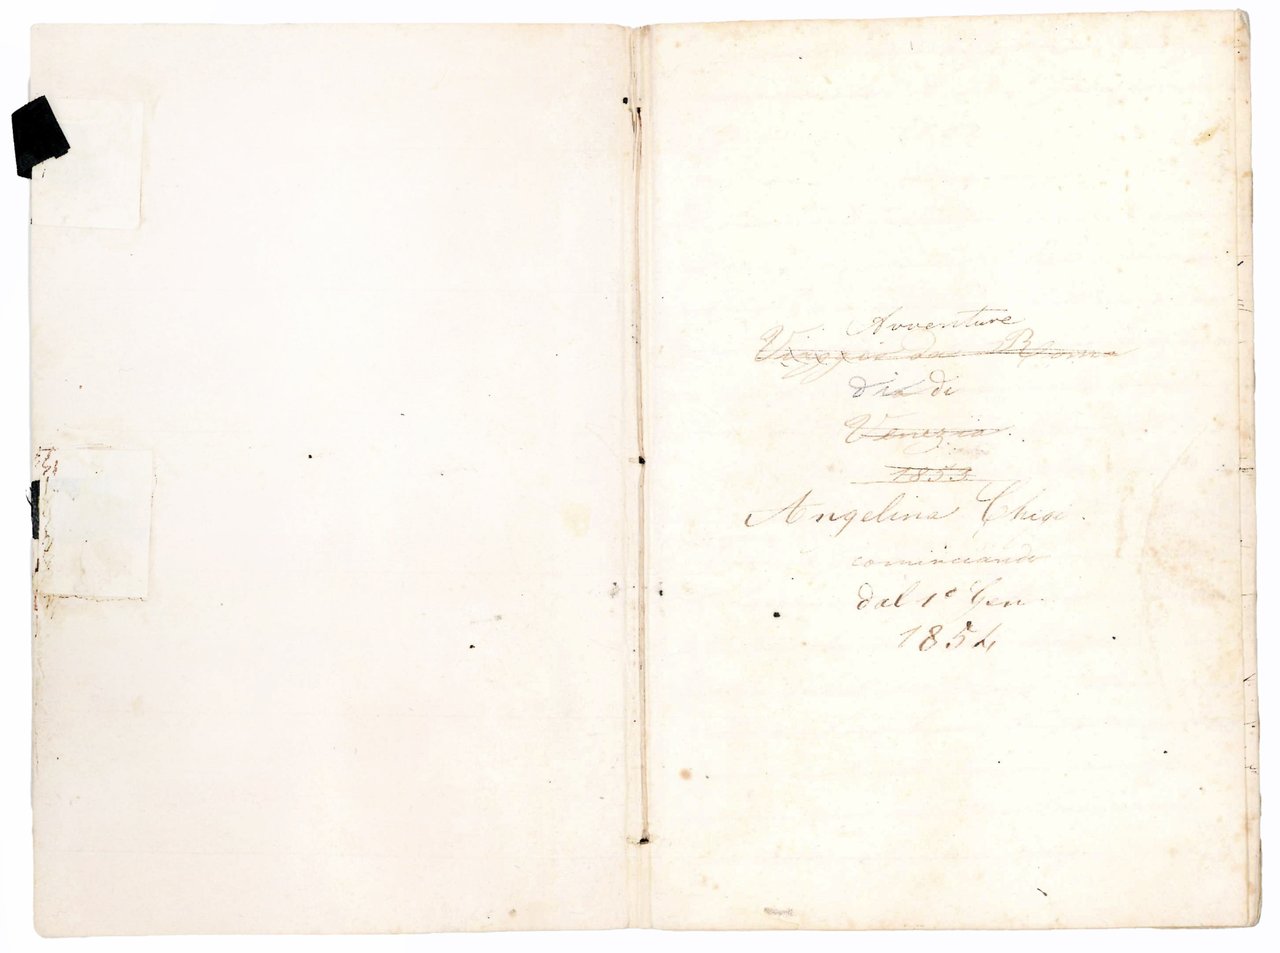 Avventure
Viaggio da Roma
di
Venezia.
1853
Angelina Chigi.
cominciando
dal 1º Gen.
1854